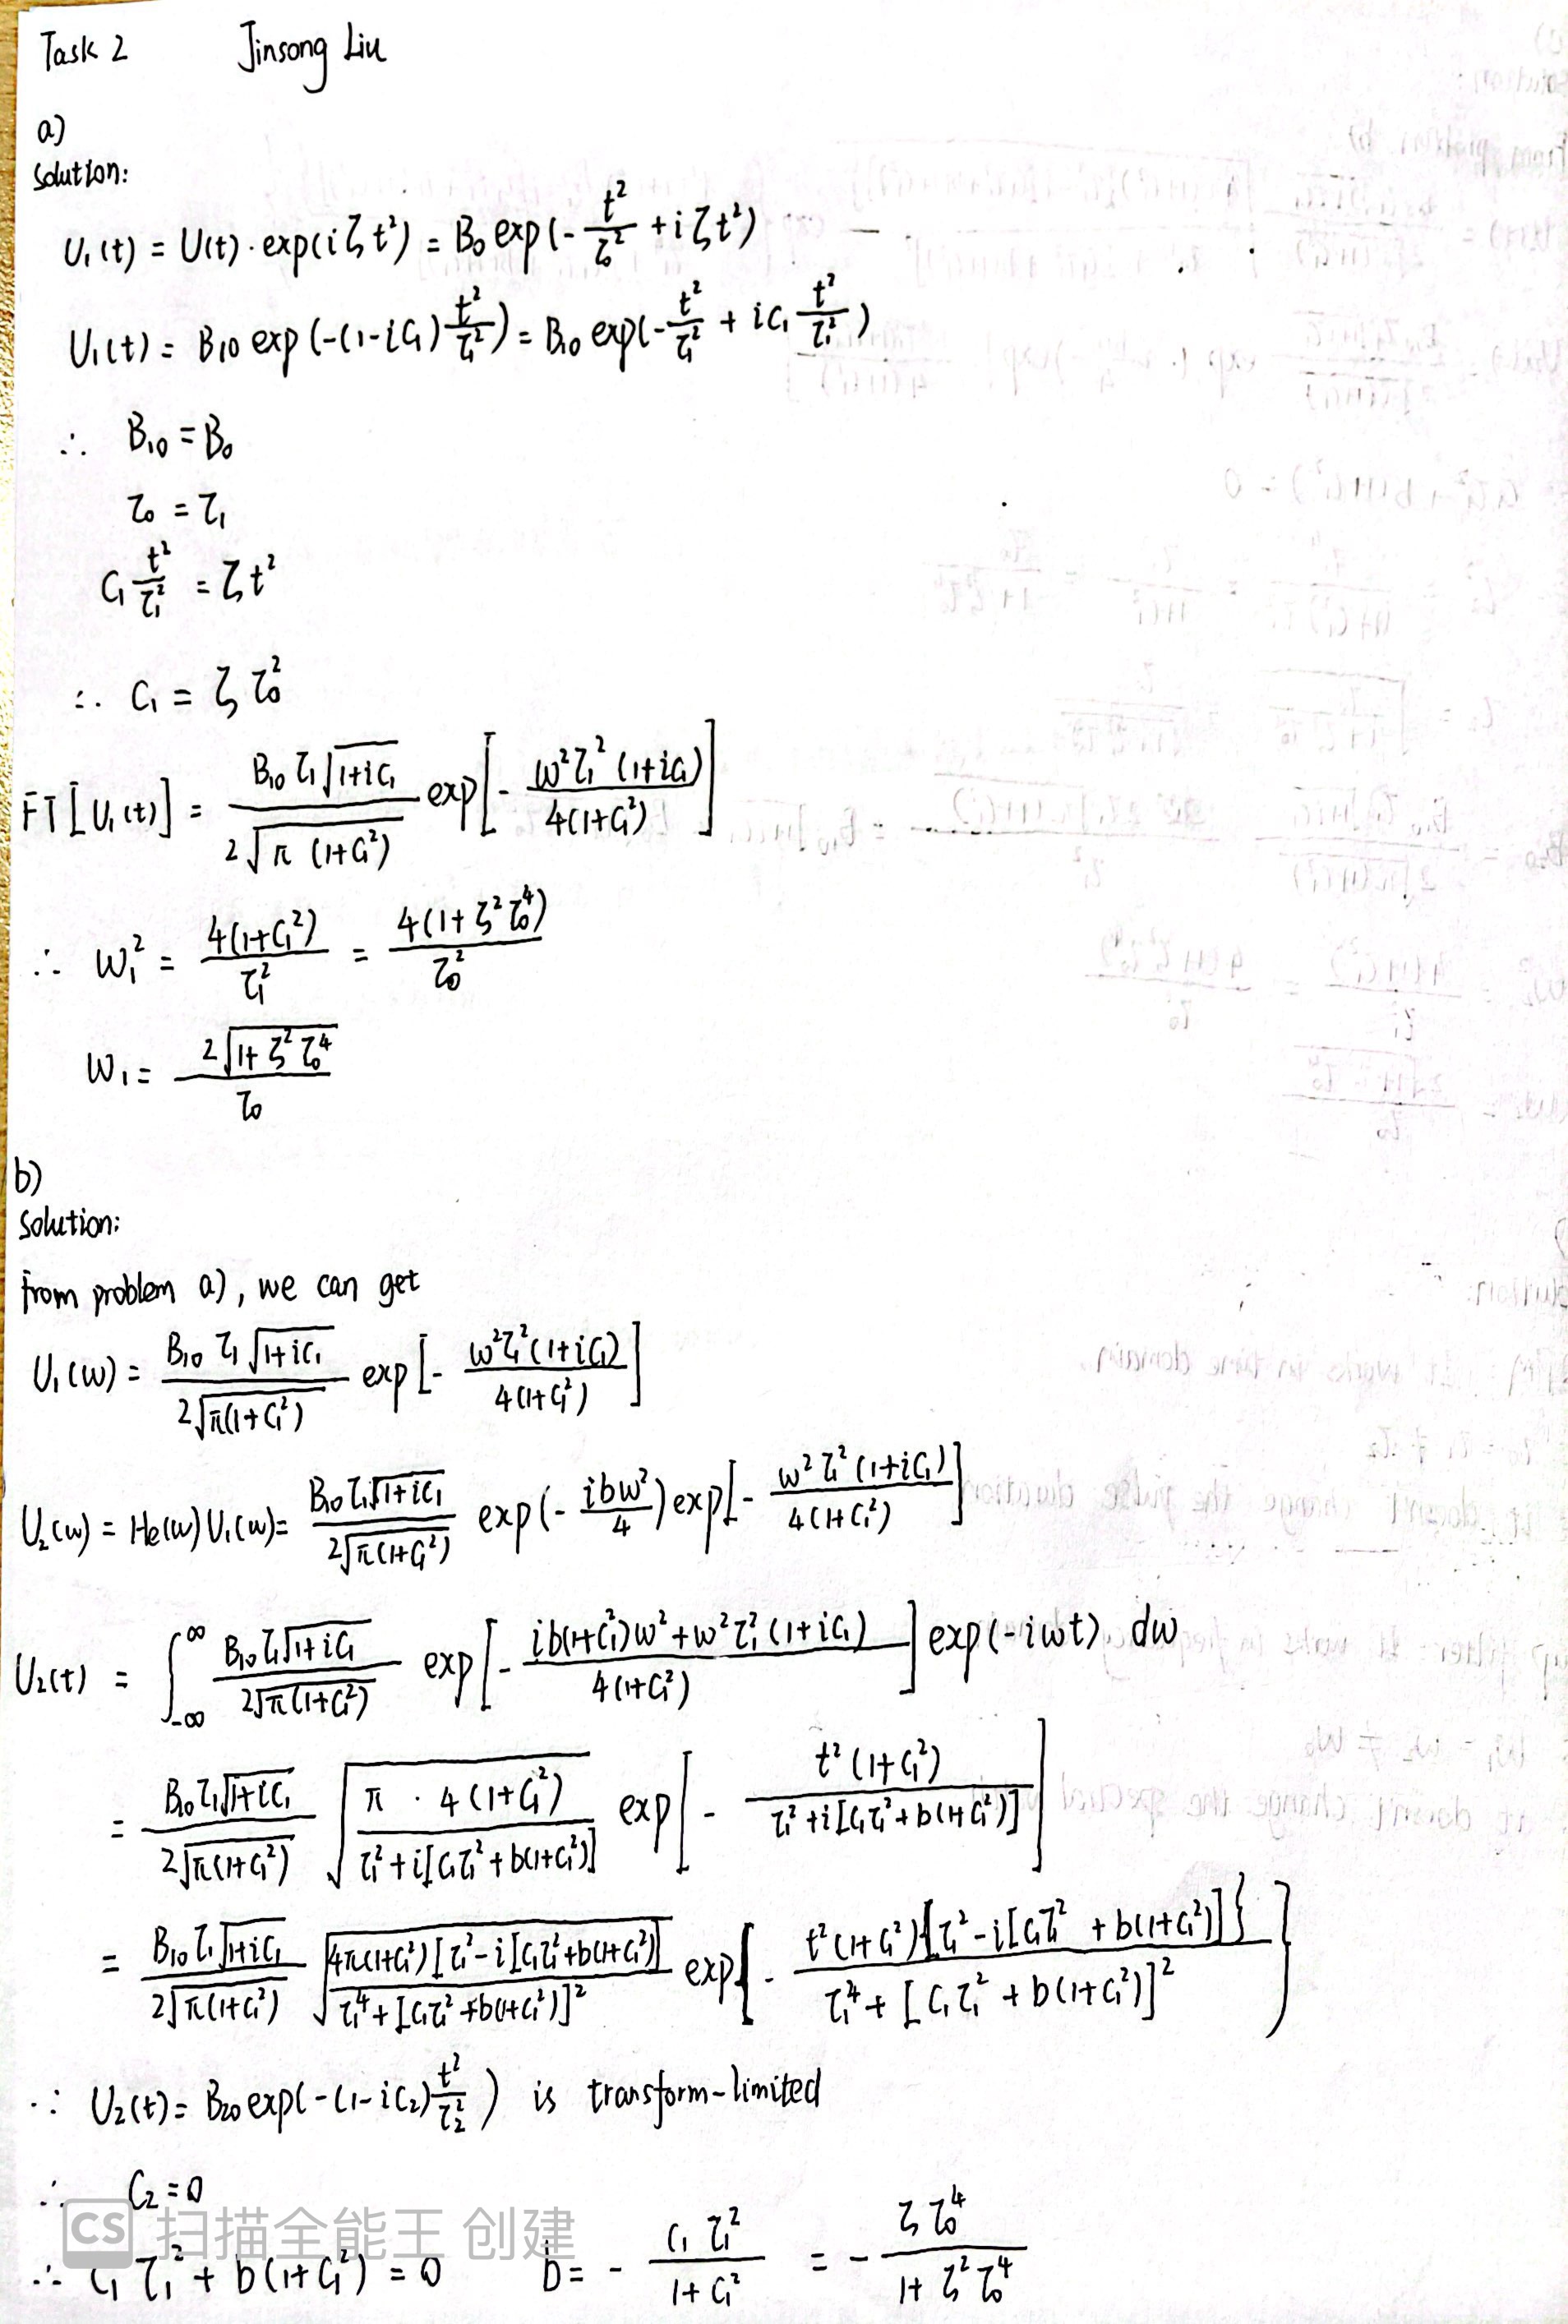 Task 2 Jinsong Liu
a)
Solution:
U₁(t) = U(t)·exp(iζt²) = B₀ exp(-t²/τ₀² + iζt²)
U₁(t) = B₁₀ exp(-(1-iC₁)t²/τ₁²) = B₁₀ exp(-t²/τ₁² + iC₁ t²/τ₁²)
∴ B₁₀ = B₀
τ₀ = τ₁
C₁ t²/τ₁² = ζt²
∴ C₁ = ζτ₀²
FT[U₁(t)] = B₁₀τ₁√(1+iC₁) / 2√(π(1+C₁²)) exp[-ω²τ₁²(1+iC₁) / 4(1+C₁²)]
∴ ω₁² = 4(1+C₁²)/τ₁² = 4(1+ζ²τ₀⁴)/τ₀²
ω₁ = 2√(1+ζ²τ₀⁴) / τ₀
b)
Solution:
From problem a), we can get
U₁(ω) = B₁₀τ₁√(1+iC₁) / 2√(π(1+C₁²)) exp[-ω²τ₁²(1+iC₁) / 4(1+C₁²)]
U₂(ω) = He(ω)U₁(ω) = B₁₀τ₁√(1+iC₁) / 2√(π(1+C₁²)) exp(-ibω²/4) exp[-ω²τ₁²(1+iC₁) / 4(1+C₁²)]
U₂(t) = ∫_{-∞}^{∞} B₁₀τ₁√(1+iC₁) / 2√(π(1+C₁²)) exp[-(ib(1+C₁²)ω²+ω²τ₁²(1+iC₁)) / 4(1+C₁²)] exp(-iωt) dω
= B₁₀τ₁√(1+iC₁) / 2√(π(1+C₁²)) √(π·4(1+C₁²) / (τ₁²+i[C₁τ₁²+b(1+C₁²)])) exp[-t²(1+C₁²) / (τ₁²+i[C₁τ₁²+b(1+C₁²)])]
= B₁₀τ₁√(1+iC₁) / 2√(π(1+C₁²)) √(4π(1+C₁²)[τ₁²-i[C₁τ₁²+b(1+C₁²)] / (τ₁⁴+[C₁τ₁²+b(1+C₁²)]²)) exp{-t²(1+C₁²){τ₁²-i[C₁τ₁²+b(1+C₁²)]} / (τ₁⁴+[C₁τ₁²+b(1+C₁²)]²)}
∵ U₂(t) = B₂₀ exp(-(1-iC₂)t²/τ₂²) is transform-limited
∴ C₂ = 0
∴ C₁τ₁² + b(1+C₁²) = 0 b = -C₁τ₁²/(1+C₁²) = -ζτ₀⁴/(1+ζ²τ₀⁴)
CS 扫描全能王 创建